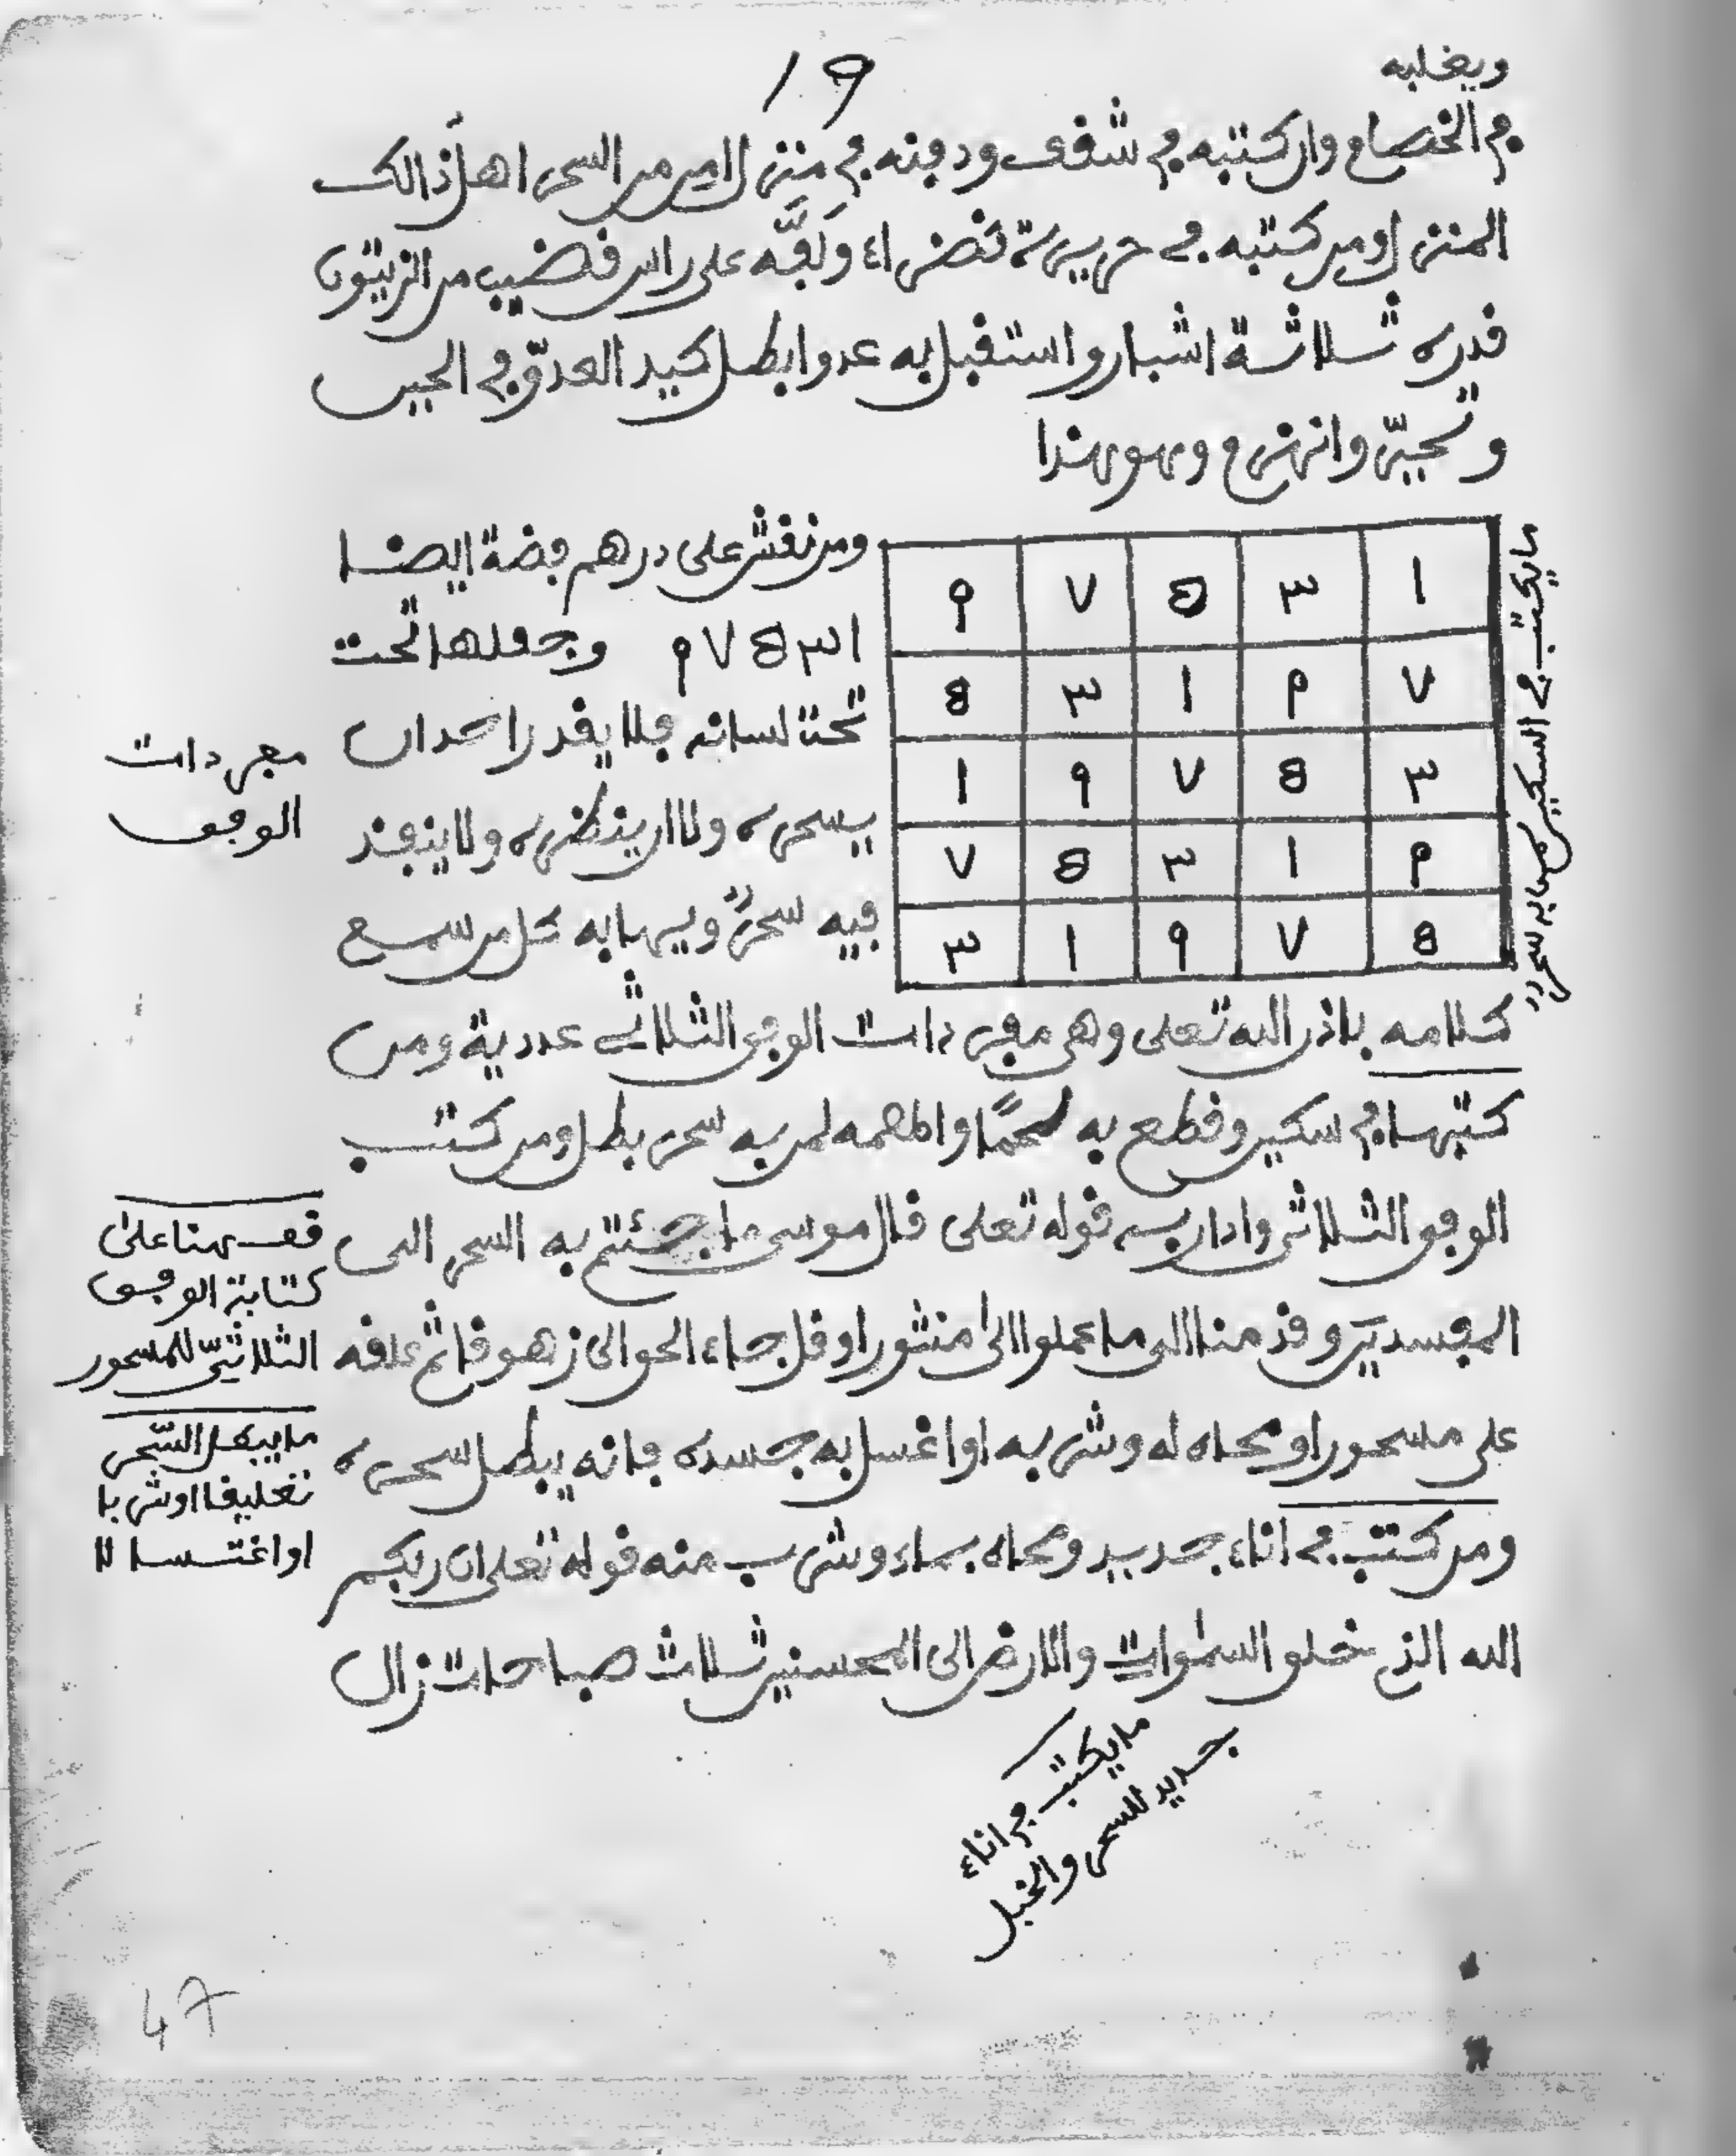 19
ويغلبه
في الخصام وان كتبه في شقف ودفنه في منزل امن من السحر اهل ذالك
المنزل ومن كتبه في حريرة خضراء ولفه على راس قضيب من الزيتون
قدره ثلاثة اشبار واستقبل به عدوا بطل كيد العدوّ في الحين
وتحيّر وانهزم وهو هذا
ما يكتب في السكين
١ ٣ 8 ٧ ٩
٧ ٩ ١ ٣ 8
٣ 8 ٧ ٩ ١
٩ ١ ٣ 8 ٧
8 ٧ ٩ ١ ٣
ومن نقش على درهم فضة ايضا
١ ٣ 8 ٧ ٩ وجعلها تحت
تحت لسانه فلا يقدر احد ان
يسحره ولا ان ينظره ولا ينفذ
فيه سحرٌ ويهابه كل من سمع
مفردات
الوفق
كلامه باذن الله تعلى وهي مفردات الوفق الثلاثي عددية ومن
كتبها في سكين وقطع به لحمًا واطعمه لمن به سحر بطل ومن كتب
الوفق الثلاثي وادار به قوله تعلى قال موسى ما جئتم به السحر الى
المفسدين وقدمنا الى ما عملوا الى منثورا وقل جاء الحق الى زهوقا ثم علقه
على مسحور او محاه له وشربه او اغسل به جسده فانه يبطل سحره
ومن كتب في اناء جديد ومحاه بماء وشرب منه قوله تعلى ان ربكم
الله الذي خلق السموات والارض الى المحسنين ثلاث صباحات زال
قف هنا على
كتابة الوفق
الثلاثيّ للمسحور
ما يبطل السّحر
تعليقا او شربا
او اغتسالا
ما يكتب في اناء
جديد للسحر والخبل
47